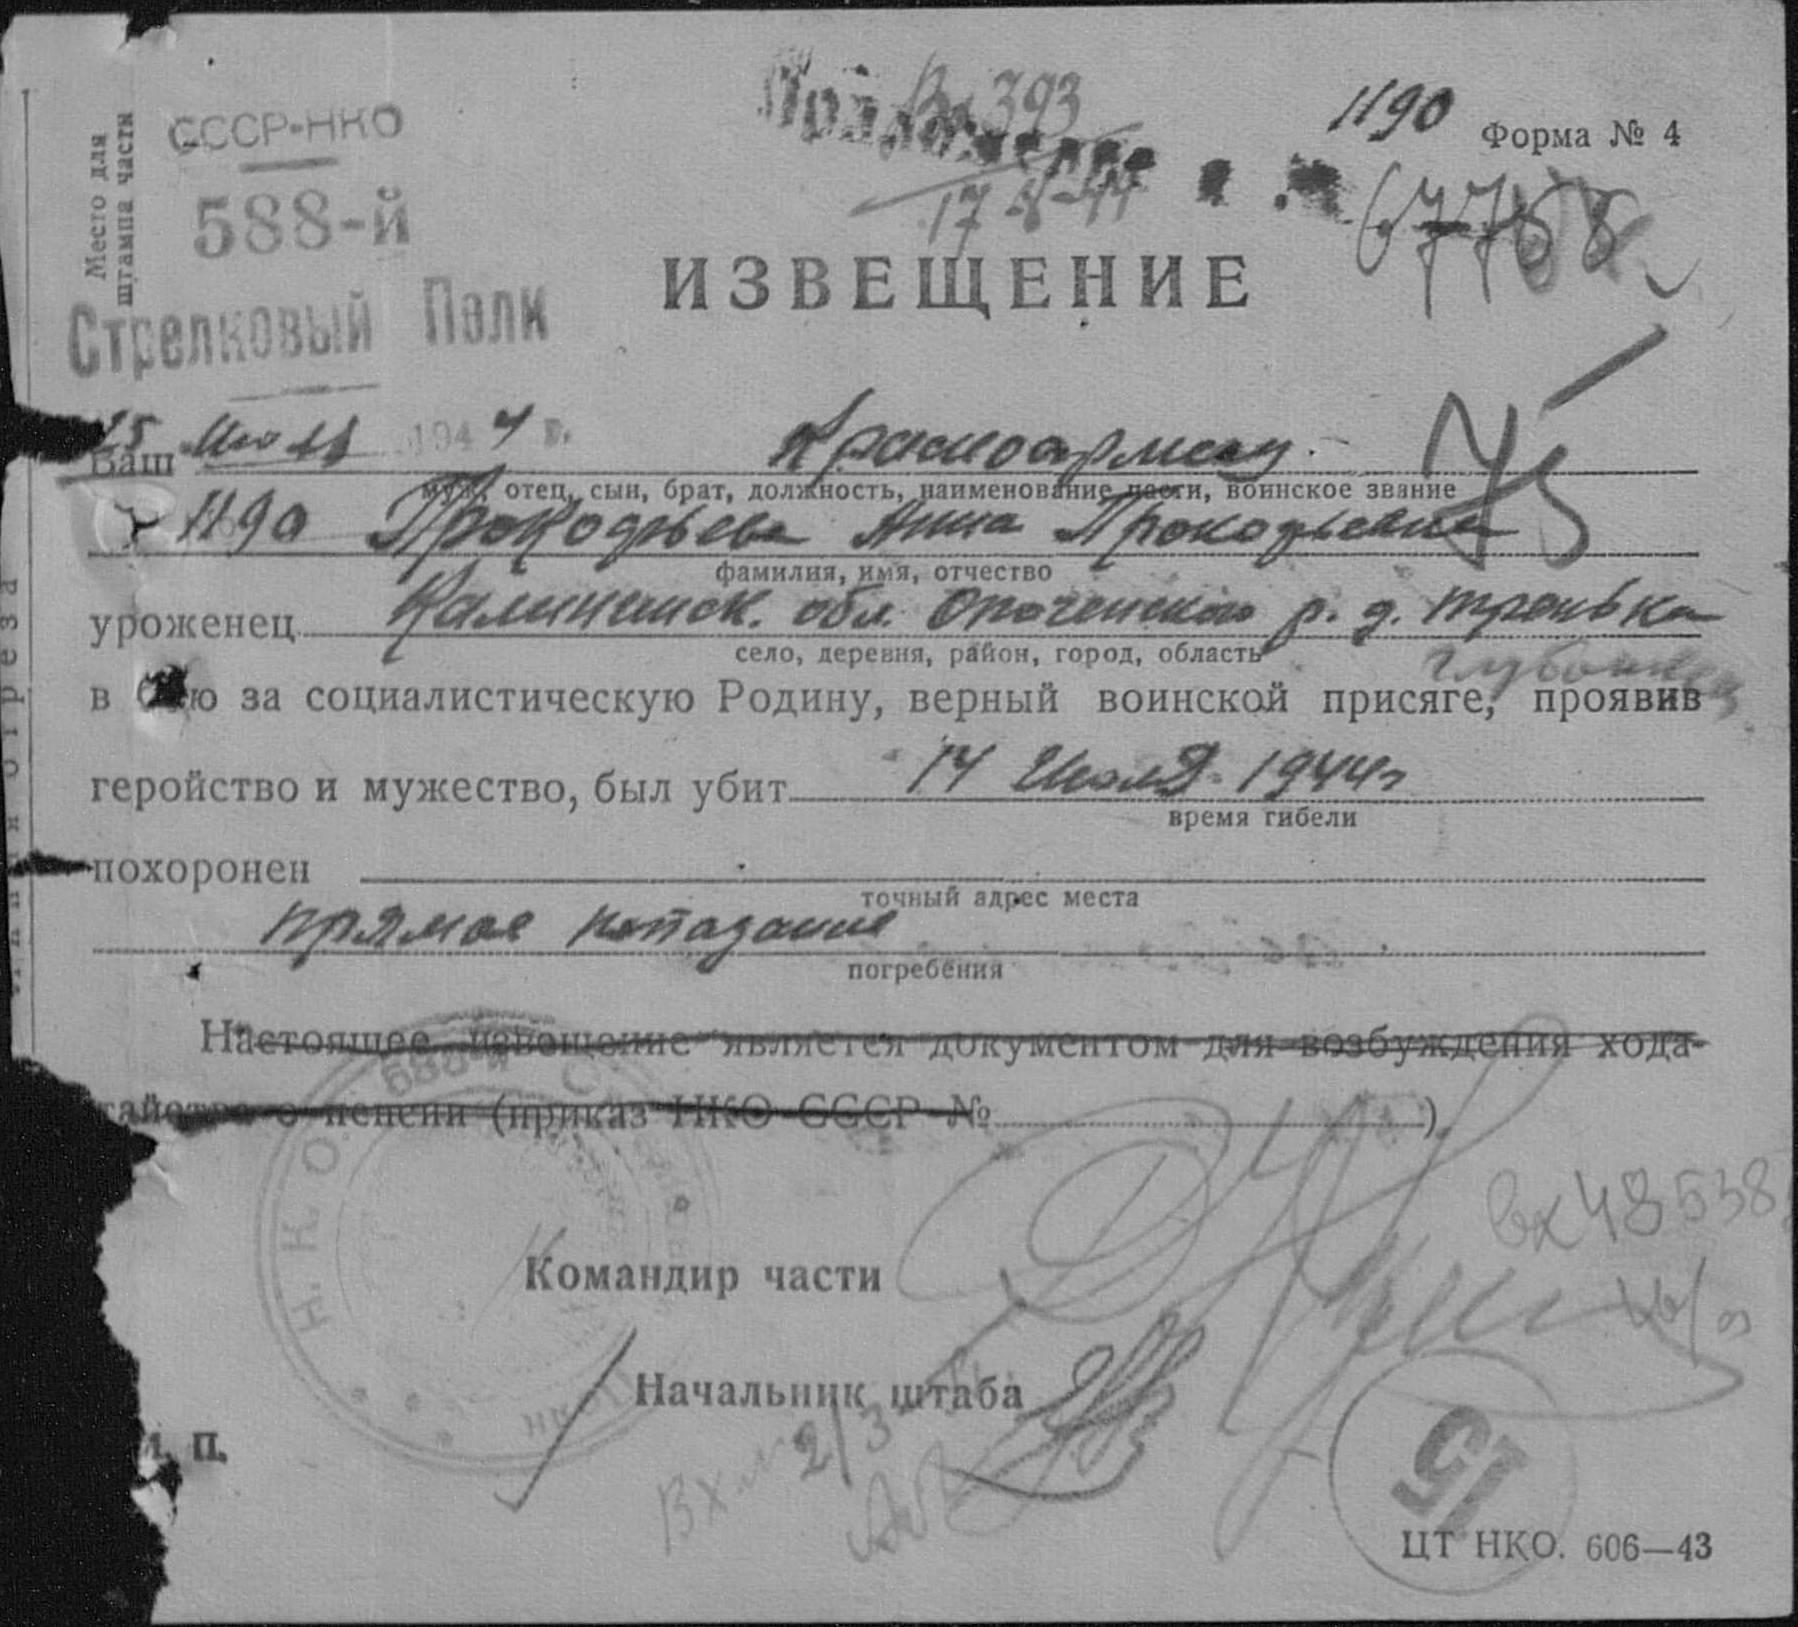 Место для штампа части
СССР-НКО
588-й
Стрелковый Полк
393
17-8-44
1190
Форма № 4
67758
ИЗВЕЩЕНИЕ
25 Июля 1944 г.
Ваш Красноармеец
муж, отец, сын, брат, должность, наименование части, воинское звание
1190 Прокофьева Анна Прокофьевна
75
фамилия, имя, отчество
уроженец Калининск. обл. Опоченской р. д.
село, деревня, район, город, область
в бою за социалистическую Родину, верный воинской присяге, проявив
геройство и мужество, был убит 14 Июля 1944г
время гибели
похоронен
точный адрес места
прямое попадание
погребения
Настоящее извещение является документом для возбуждения хода-
тайства о пенсии (приказ НКО СССР №)
588-й
Н. К. О.
вх 48538
Командир части
Начальник штаба
М. П.
15
ЦТ НКО. 606—43